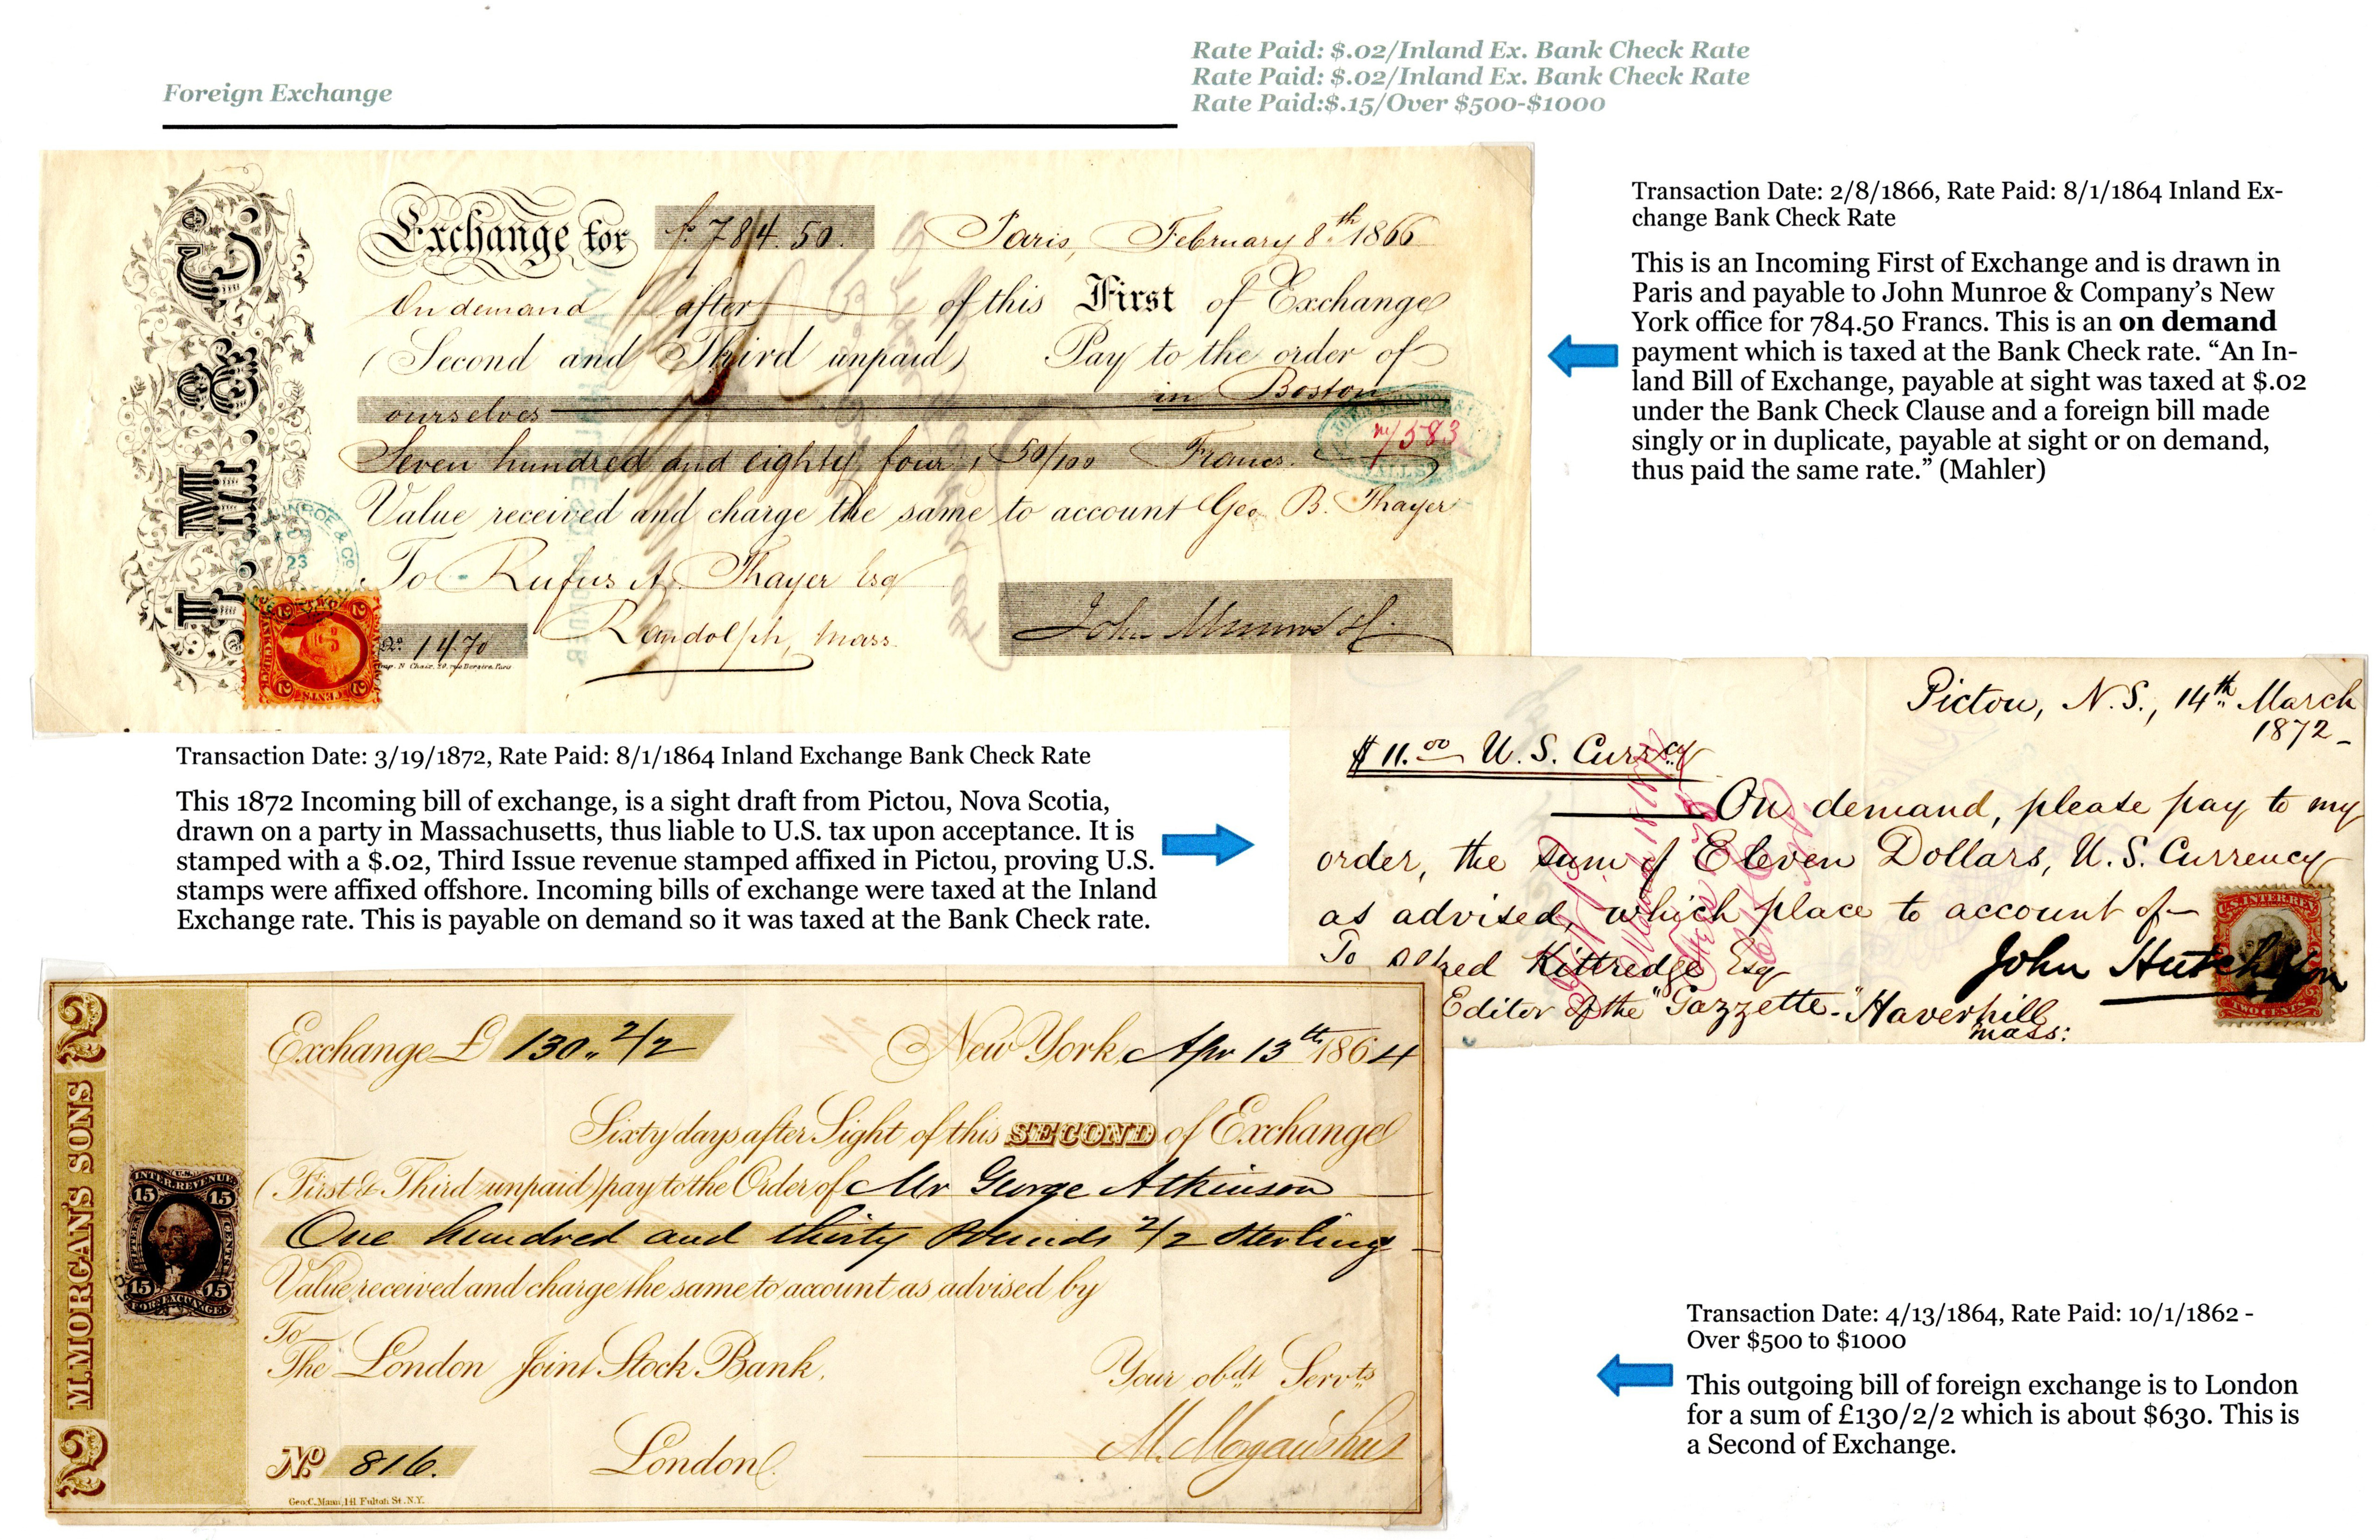 Foreign Exchange
Rate Paid: $.02/Inland Ex. Bank Check Rate
Rate Paid: $.02/Inland Ex. Bank Check Rate
Rate Paid:$.15/Over $500-$1000
J. M. & C.
Exchange for f. 784.50. Paris, February 8th 1866
On demand after of this First of Exchange
(Second and Third unpaid) Pay to the order of
ourselves in Boston
Seven hundred and eighty four, 50/100 Francs.
Value received and charge the same to account Geo. B. Thayer
To Rufus A. Thayer Esq
Randolph, Mass.
No. 1470
John Munroe
583
23
TWO
CENTS
Transaction Date: 2/8/1866, Rate Paid: 8/1/1864 Inland Ex-
change Bank Check Rate
This is an Incoming First of Exchange and is drawn in
Paris and payable to John Munroe & Company’s New
York office for 784.50 Francs. This is an on demand
payment which is taxed at the Bank Check rate. “An In-
land Bill of Exchange, payable at sight was taxed at $.02
under the Bank Check Clause and a foreign bill made
singly or in duplicate, payable at sight or on demand,
thus paid the same rate.” (Mahler)
Transaction Date: 3/19/1872, Rate Paid: 8/1/1864 Inland Exchange Bank Check Rate
This 1872 Incoming bill of exchange, is a sight draft from Pictou, Nova Scotia,
drawn on a party in Massachusetts, thus liable to U.S. tax upon acceptance. It is
stamped with a $.02, Third Issue revenue stamped affixed in Pictou, proving U.S.
stamps were affixed offshore. Incoming bills of exchange were taxed at the Inland
Exchange rate. This is payable on demand so it was taxed at the Bank Check rate.
Pictou, N.S., 14th March
1872
$11.00 U.S. Curr.cy
On demand, please pay to my
order, the sum of Eleven Dollars, U.S. Currency
as advised, which place to account of
To Alfred Kittredge Esq
John Hutchison
Editor of the "Gazzette" Haverhill
Mass:
U.S. INTER. REV.
TWO CENTS
2 M. MORGAN'S SONS 2
Exchange £ 130.. 2/2 New York, Apr 13th 1864
Sixty days after Sight of this SECOND of Exchange
(First & Third unpaid) pay to the Order of Mr George Atkinson
One hundred and thirty Pounds 2/2 Sterling
Value received and charge the same to account as advised by
To
The London Joint Stock Bank,
Your obdt Servts
No 816. London M. Morgan's Sons
Geo. C. Mann, 141 Fulton St. N.Y.
U.S.
INTER. REVENUE
15 15
FIFTEEN CENTS
15 15
FOR. EXCHANGE
Transaction Date: 4/13/1864, Rate Paid: 10/1/1862 -
Over $500 to $1000
This outgoing bill of foreign exchange is to London
for a sum of £130/2/2 which is about $630. This is
a Second of Exchange.